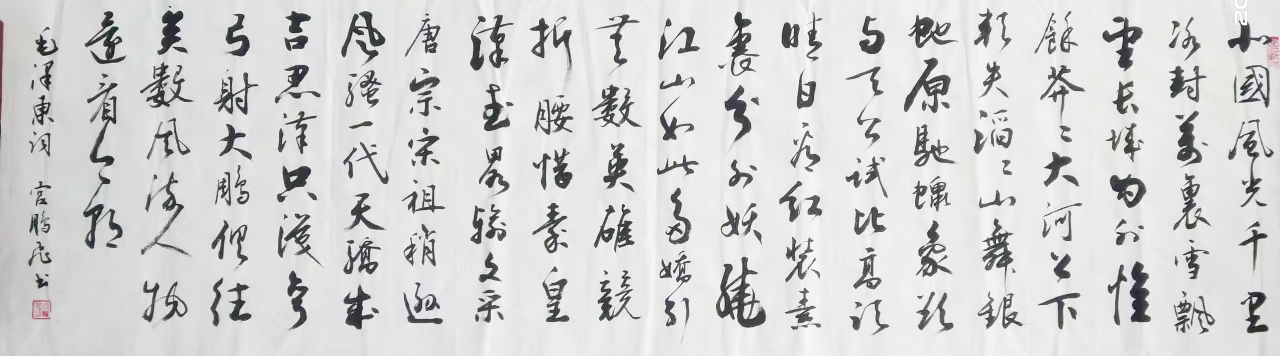 北國風光千里
冰封萬裏雪飄
望長城内外惟
餘莽〻大河上下
頓失滔〻山舞銀
蛇原馳蠟象欲
与天公試比高須
晴日看紅裝素
裹分外妖嬈
江山如此多嬌引
無數英雄競
折腰惜秦皇
漢武畧輸文采
唐宗宋祖稍遜
風騷一代天驕成
吉思漢只識彎
弓射大鵰俱往
矣數風流人物
還看今朝
毛澤東詞 宫鵬飛书